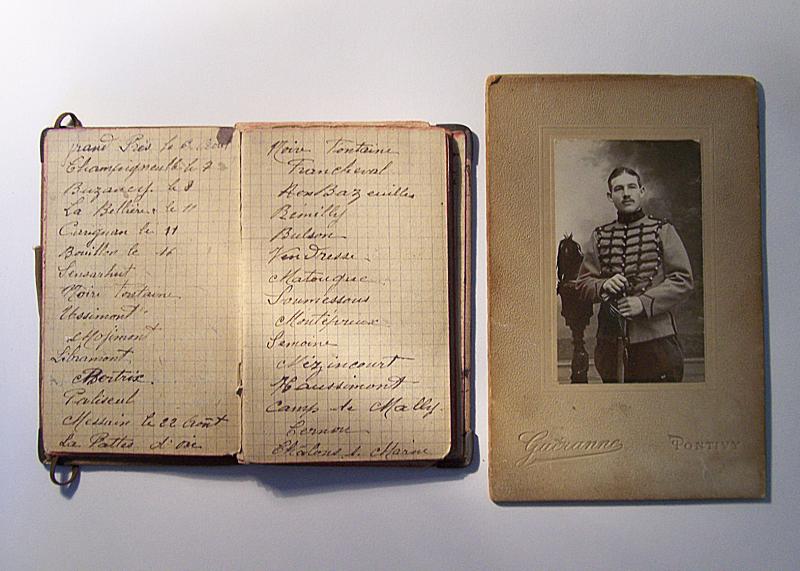 Grand Prés le 6 Août
Champigneulle 7
Buzancy le 8
La Bellière le 11
Carignan le 11
Bouillon le 16
Sensarhut
Noire fontaine
Ussimont
Libramont
Bertrix
Paliseul
Messain le 22 Août
La Pattes d'Oie
Noire Fontaine
Francheval
Bazeuilles
Rémilly
Bulson
Vendresse
Matougue
Soumessous
Montépreux
Semoine
Mézincourt
Haussimont
Camp de Mally
Lernon
Châlons s. Marne
Guéranne
PONTIVY